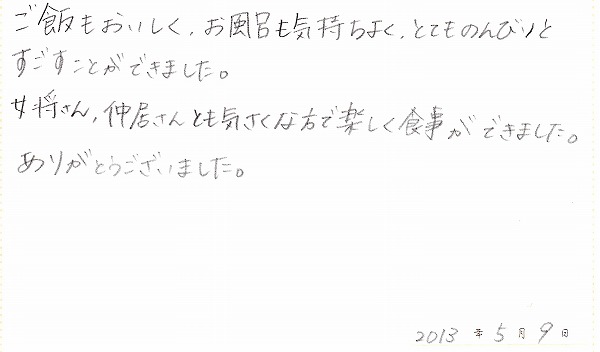 ご飯もおいしく、お風呂も気持ちよく、とてものんびりと
すごすことができました。
女将さん、仲居さんとも気さくな方で楽しく食事ができました。
ありがとうございました。
2013年5月9日